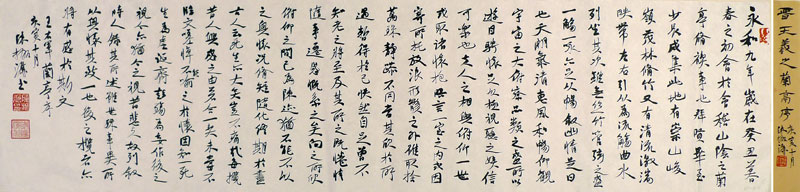 晋王羲之兰亭序
永和九年歲在癸丑暮
春之初會於會稽山陰之蘭
亭脩禊事也群賢畢至
少長咸集此地有崇山峻
嶺茂林脩竹又有清流激湍
映帶左右引以為流觴曲水
列坐其次雖無絲竹管弦之盛
一觴一詠亦足以暢敘幽情是日
也天朗氣清惠風和暢仰觀
宇宙之大俯察品類之盛所以
遊目騁懷足以極視聽之娛信
可樂也夫人之相與俯仰一世
或取諸懷抱悟言一室之內或因
寄所託放浪形骸之外雖取捨
萬殊靜躁不同當其欣於所
遇暫得於己快然自足曾不
知老之將至及其所之既惓情
隨事遷感慨係之矣向之所欣
俯仰之間已為陳迹猶不能不以
之興懷況脩短隨化終期於盡
古人云死生亦大矣豈不痛哉每攬
昔人興感之由若合一契未嘗不
臨文嗟悼不能喻之於懷固知一死
生為虛誕齊彭殤為妄作後之
視今亦猶今之視昔悲夫故列敘
時人錄其所述雖世殊事異所
以興懷其致一也後之攬者亦
將有感於斯文
王右軍蘭亭序
癸亥十月
陈振濂书